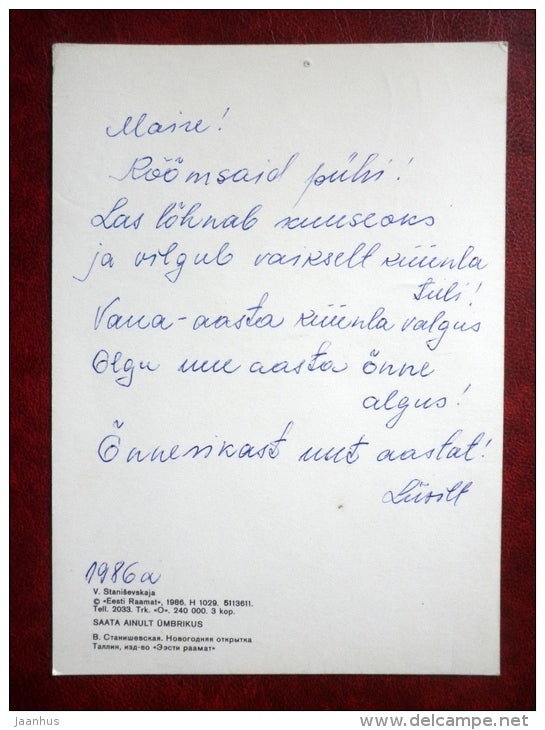 Maire!
Rõõmsaid pühi!
Las lõhnab kuuseoks
ja vilgub vaikselt küünla
tuli!
Vana-aasta küünla valgus
Olgu uue aasta õnne
algus!
Õnnerikast uut aastat!
1986a
V. Staniševskaja
© «Eesti Raamat», 1986. H 1029. 5113611.
Tell. 2033. Trk. «O». 240 000. 3 kop.
SAATA AINULT ÜMBRIKUS
В. Станишевская. Новогодняя открытка
Таллин, изд-во «Ээсти раамат»
jaanhus
www.delcampe.net